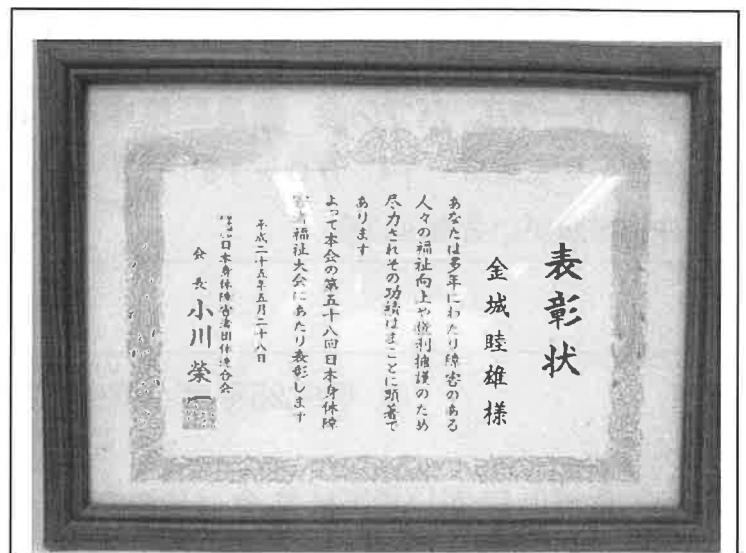 表彰状
金城睦雄様
あなたは多年にわたり障害のある
人々の福祉向上や権利擁護のため
尽力されその功績はまことに顕著で
あります
よって本会の第五十八回日本身体障
害者福祉大会にあたり表彰します
平成二十五年五月二十八日
日本身体障害者団体連合会
会長 小川榮一